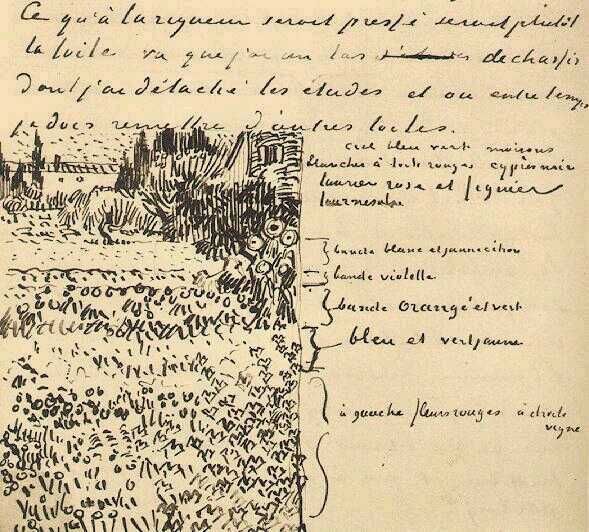 Ce qu'à la rigueur serait pressé serait plutôt
la toile vu que j'ai un tas de chassis
dont j'ai détaché les études et où entretemps
je dois remettre d'autres toiles.
ciel bleu vert maisons
blanches à toits rouges cyprès noir
laurier rose et figuier
tournesols
bande blanc et jaune citron
bande violette
bande Orangé et vert
bleu et vert jaune
à gauche fleurs rouges à droite
vigne